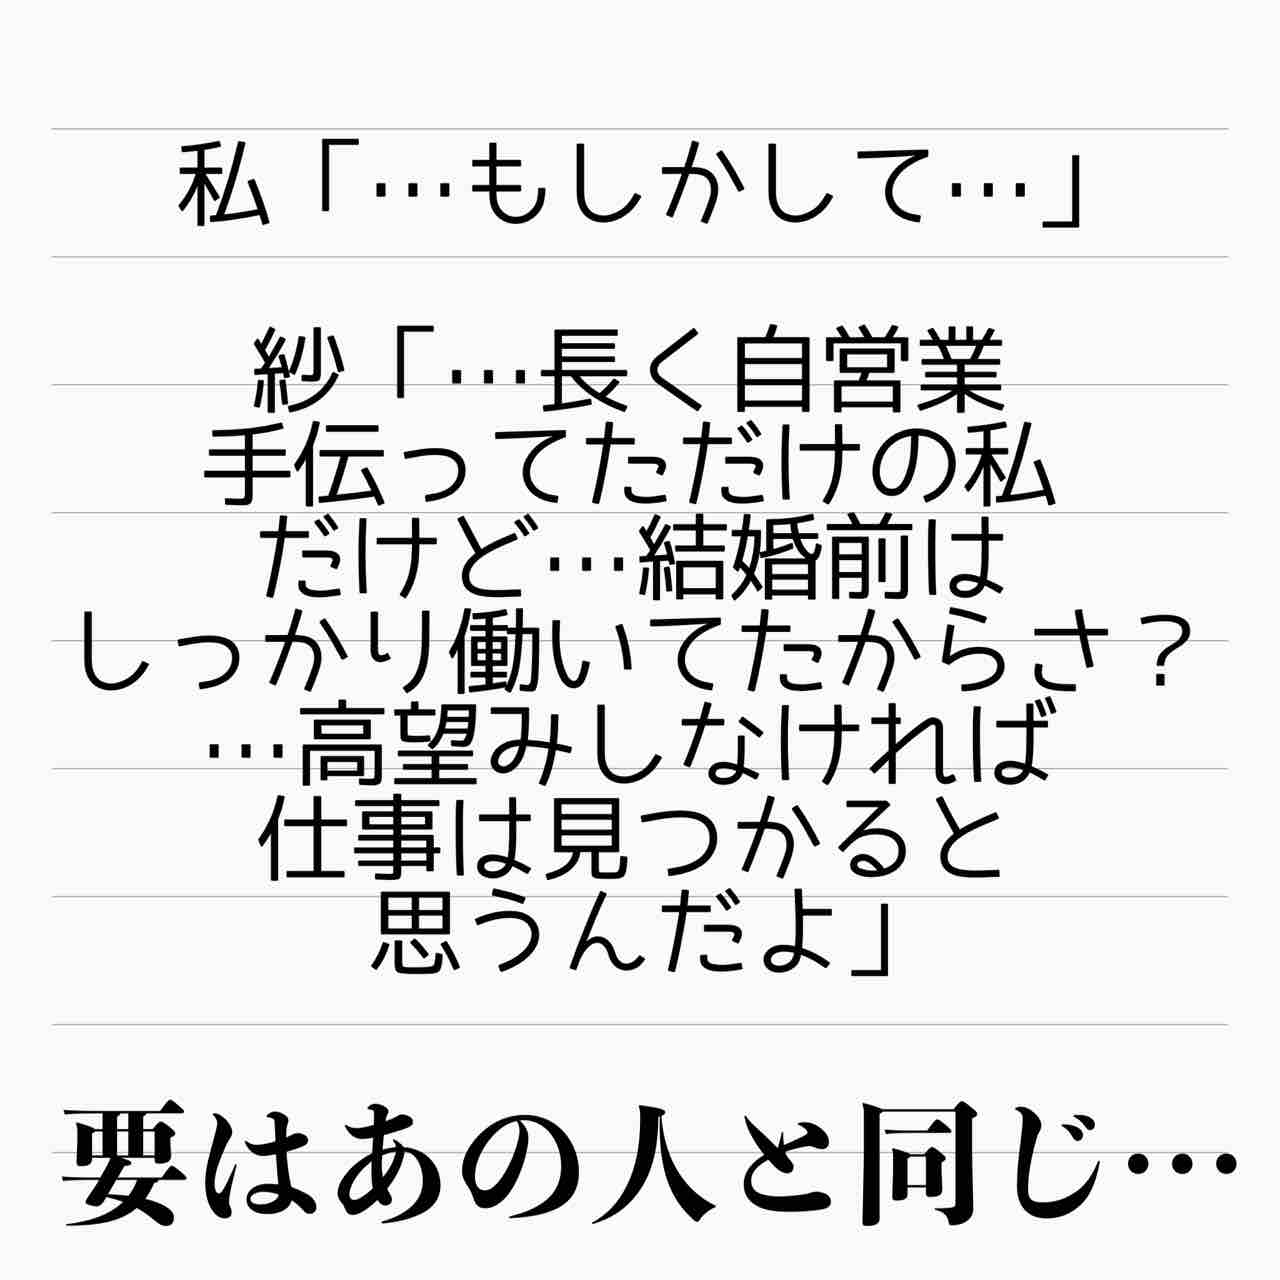 私「…もしかして…」
紗「…長く自営業
手伝ってただけの私
だけど…結婚前は
しっかり働いてたからさ？
…高望みしなければ
仕事は見つかると
思うんだよ」
要はあの人と同じ…